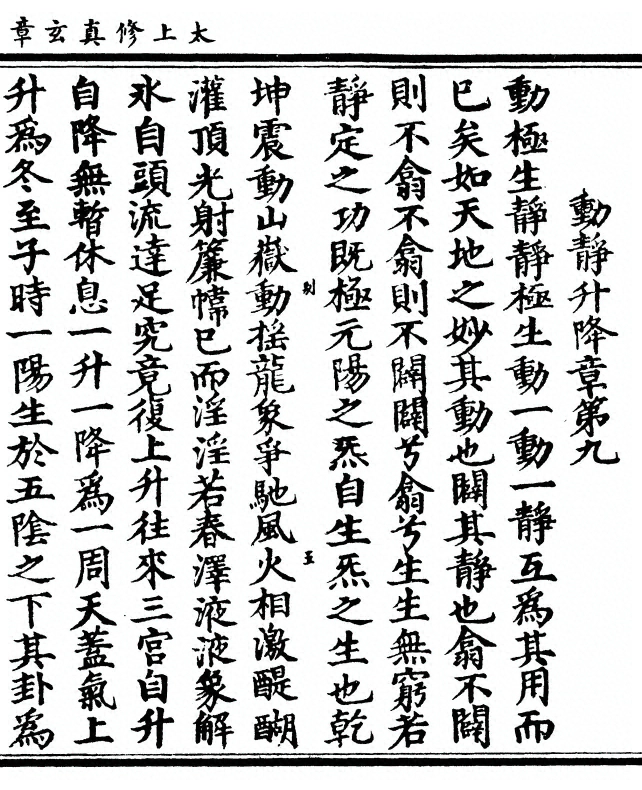 太上修真玄章
動靜升降章第九
動極生靜靜極生動一動一靜互爲其用而
已矣如天地之妙其動也闢其靜也翕不闢
則不翕不翕則不闢闢兮翕兮生生無窮若
靜定之功既極元陽之炁自生炁之生也乾
坤震動山嶽動搖龍象爭馳風火相激醍醐
灌頂光射簾幃巳而淫淫若春澤液液象解
氷自頭流達足究竟復上升往來三宮自升
自降無暫休息一升一降爲一周天蓋氣上
升爲冬至子時一陽生於五陰之下其卦爲
別
五